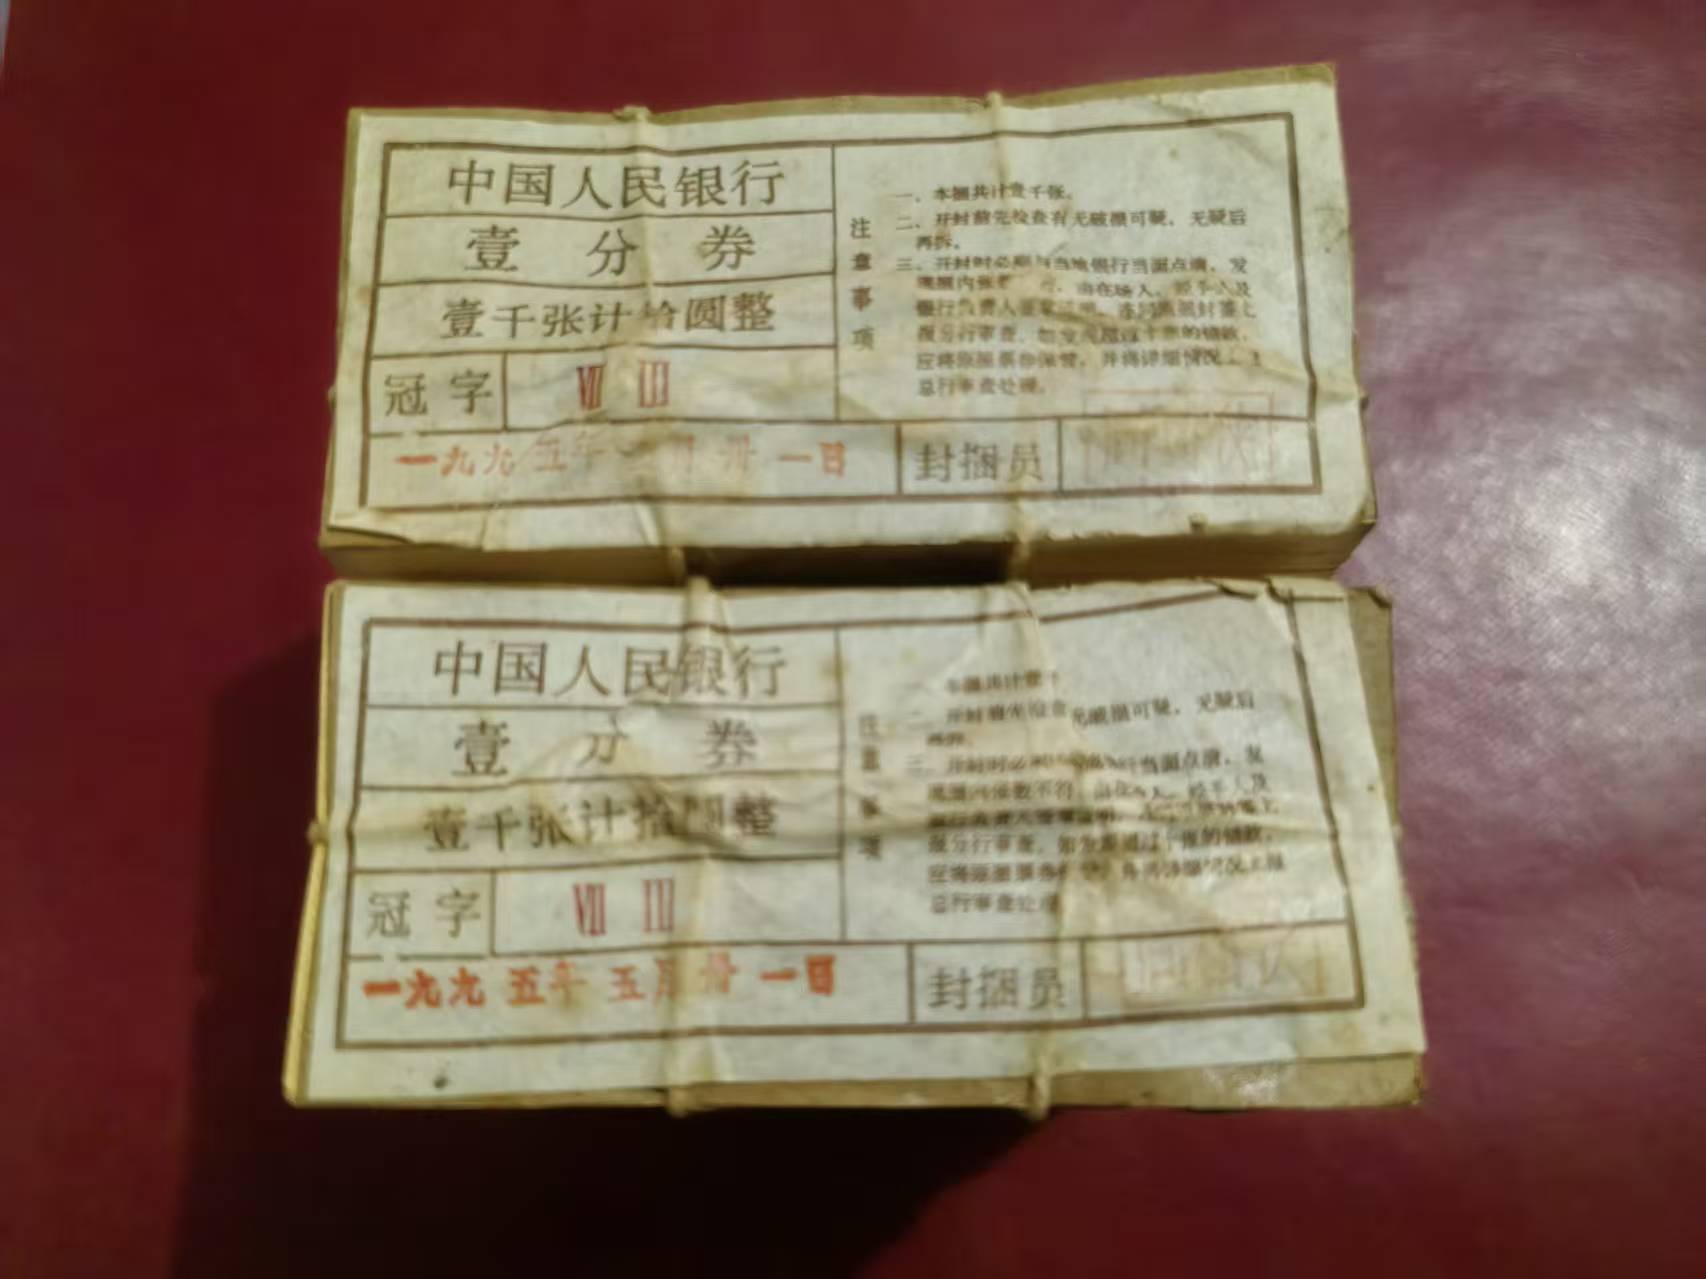 中国人民银行
壹分券
壹千张计拾圆整
冠字 Ⅶ Ⅲ
一九九五年 月卅一日
封捆员
注意事项
一、本捆共计壹千张。
二、开封前先检查有无破损可疑，无疑后
再拆。
三、开封时必须与当地银行当面点清，发
捆内张 ，由在场人、经手人及
银行负责人签章证明，连同原捆封签上
报分行审查，如发 超过十张的错款，
应将原捆票券保管，并将详细情况上
总行审查处理。
中国人民银行
壹分券
壹千张计拾圆整
冠字 Ⅶ Ⅲ
一九九五年五月卅一日
封捆员
注意事项
本捆共计壹千
二、开封前先检查 无破损可疑，无疑后
再拆。
三、开封时必 行当面点清，发
现捆内张数不符，由在场人、经手人及
银行负责人签章证明， 封签上
报分行审查，如发 超过十张的错款，
应将原捆票券 ，并将详细情况上报
总行审查处理